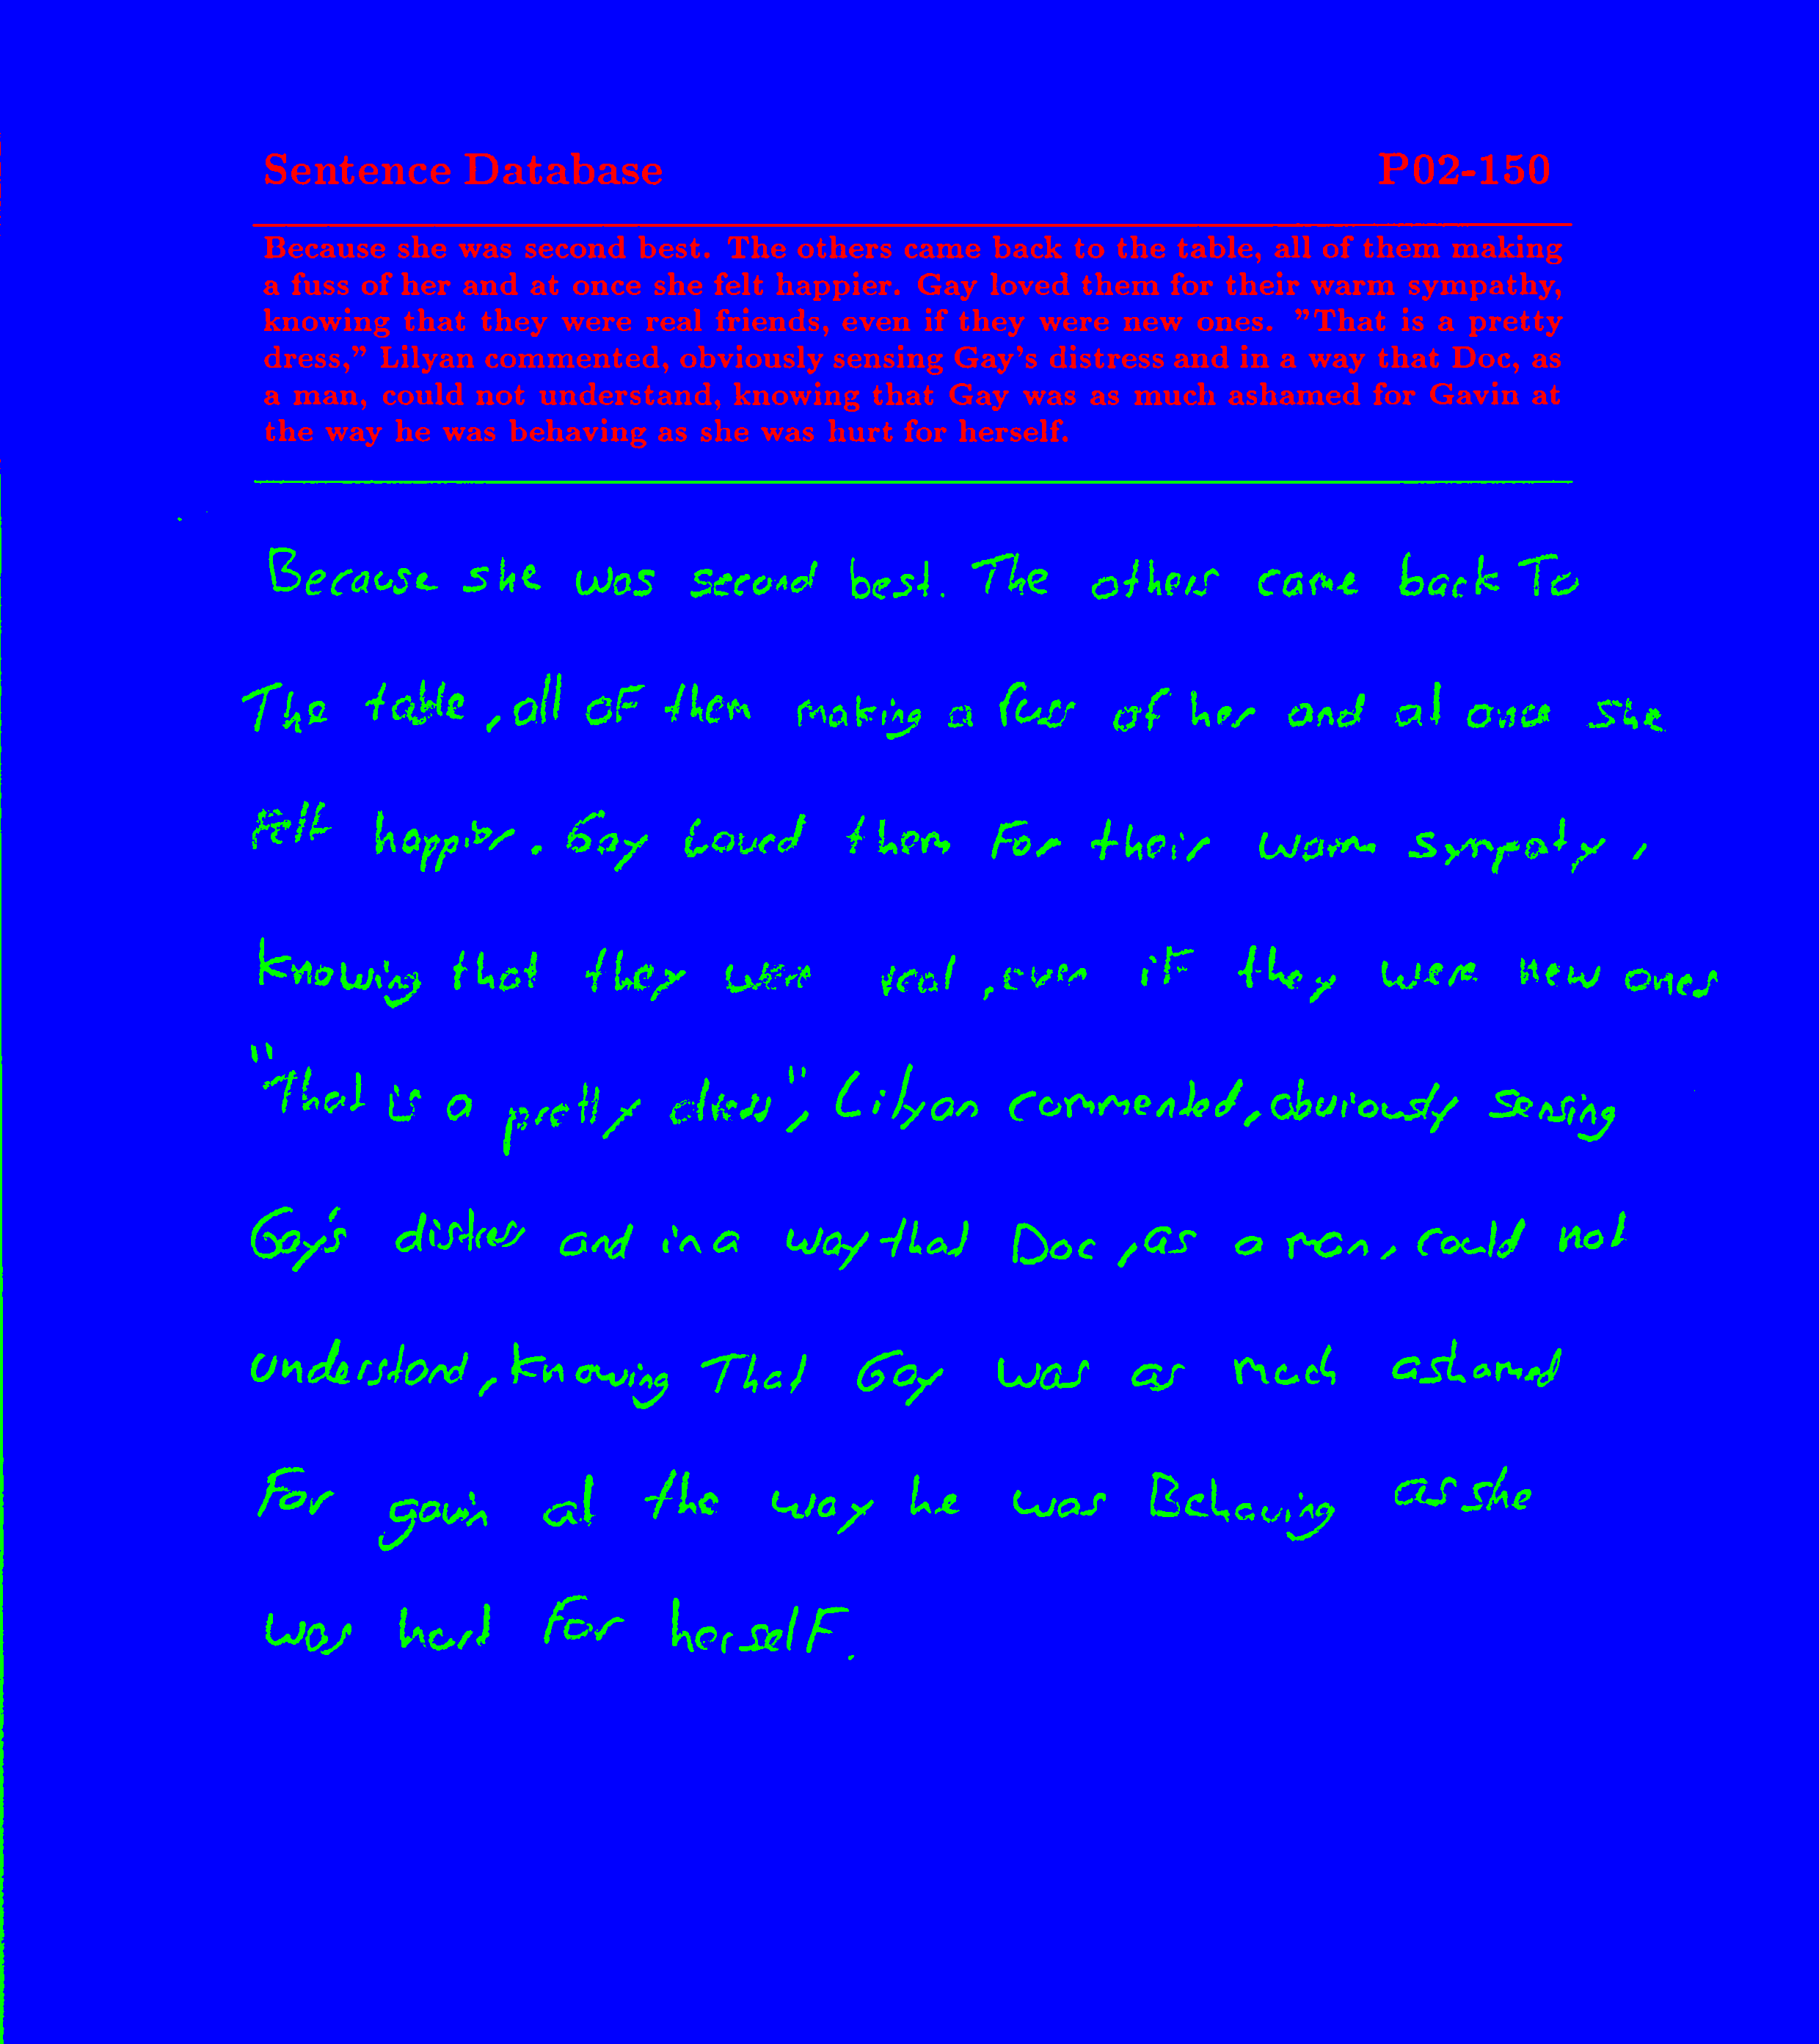 Sentence Database P02-150
Because she was second best. The others came back to the table, all of them making
a fuss of her and at once she felt happier. Gay loved them for their warm sympathy,
knowing that they were real friends, even if they were new ones. "That is a pretty
dress," Lilyan commented, obviously sensing Gay's distress and in a way that Doc, as
a man, could not understand, knowing that Gay was as much ashamed for Gavin at
the way he was behaving as she was hurt for herself.
Because she was second best. The others came back To
The table, all oF them making a fuss of her and at once she
Felt happier. Gay Loved them For their warm sympaty,
knowing that they were real, even iF they were new ones
"That is a pretty dress", Lilyan commented, obviously sensing
Gay's distress and in a way that Doc, as a man, could not
understand, knowing That Gay was as much ashamed
For gavin at the way he was Behaving as she
was hard For herselF.